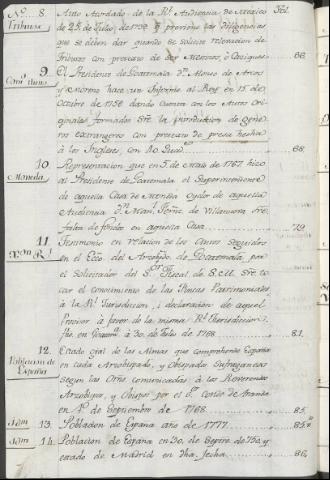 Nº 8. Auto Acordado de la Rl. Audiencia de Mexico Fol.
Tributos de 23 de Julio de 1758 y previene las diligencias
que se deben dar quando se solicite relevacion de
Tributos con pretexto de ser Mestizos, o Caciques 66.
9. El Presidente de Guatemala Dn. Alonso de Arcos
y Moreno hace un Informe al Rey en 15 de
Octubre de 1758 dando cuenta con los Autos Ori-
ginales formados sre. la introduccion de gene-
ros extrangeros con pretexto de presa hecha
à los Ingleses, con Rl. 68.
10. Representacion que en 5 de Maio de 1767 hizo
Moneda al Presidente de Guatemala el Superintendente
de aquella Casa de Moneda Oydor de aquella
Audiencia Dn. Man. de Villanueva sre.
de fondos en aquella Casa 79.
11. Testimonio en relacion de los Autos seguidos
en el Ecco. del Arzobpdo. de Guatemala, por
el Solicitador del Sor. Fiscal de S.M. sre. to-
car el conocimiento de las Fincas Patrimoniales
à la Rl. Jurisdiccion, i declaracion de aquel
Provisor à favor de la misma Rl. Jurisdiccion
fha. en Goatema. à 30. de Julio de 1768 81.
12. Estado gral de las Almas que comprehende España
Poblacion de en cada Arzobispado, y Obispado Sufraganeos
España segun las Ordns. comunicadas à los Reverendos
Arzobispos, y Obispos por el Sr. Conde de Aranda
en 1º de Septiembre de 1768 85.
Idm 13. Poblacion de España año de 1777 85.
Idm 14. Poblacion de España en 30. de y
estado de Madrid en dha. fecha 86.